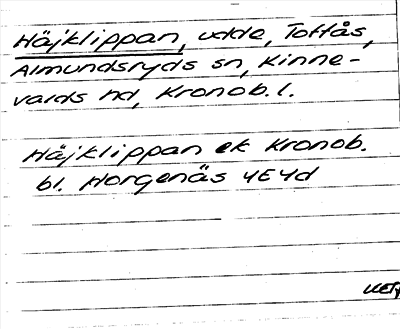 Häjklippan, udde, Toftås,
Almundsryds sn, Kinne-
valds hd, Kronob. l.
Häjklippan ek Kronob.
bl. Horgenäs 4E4d